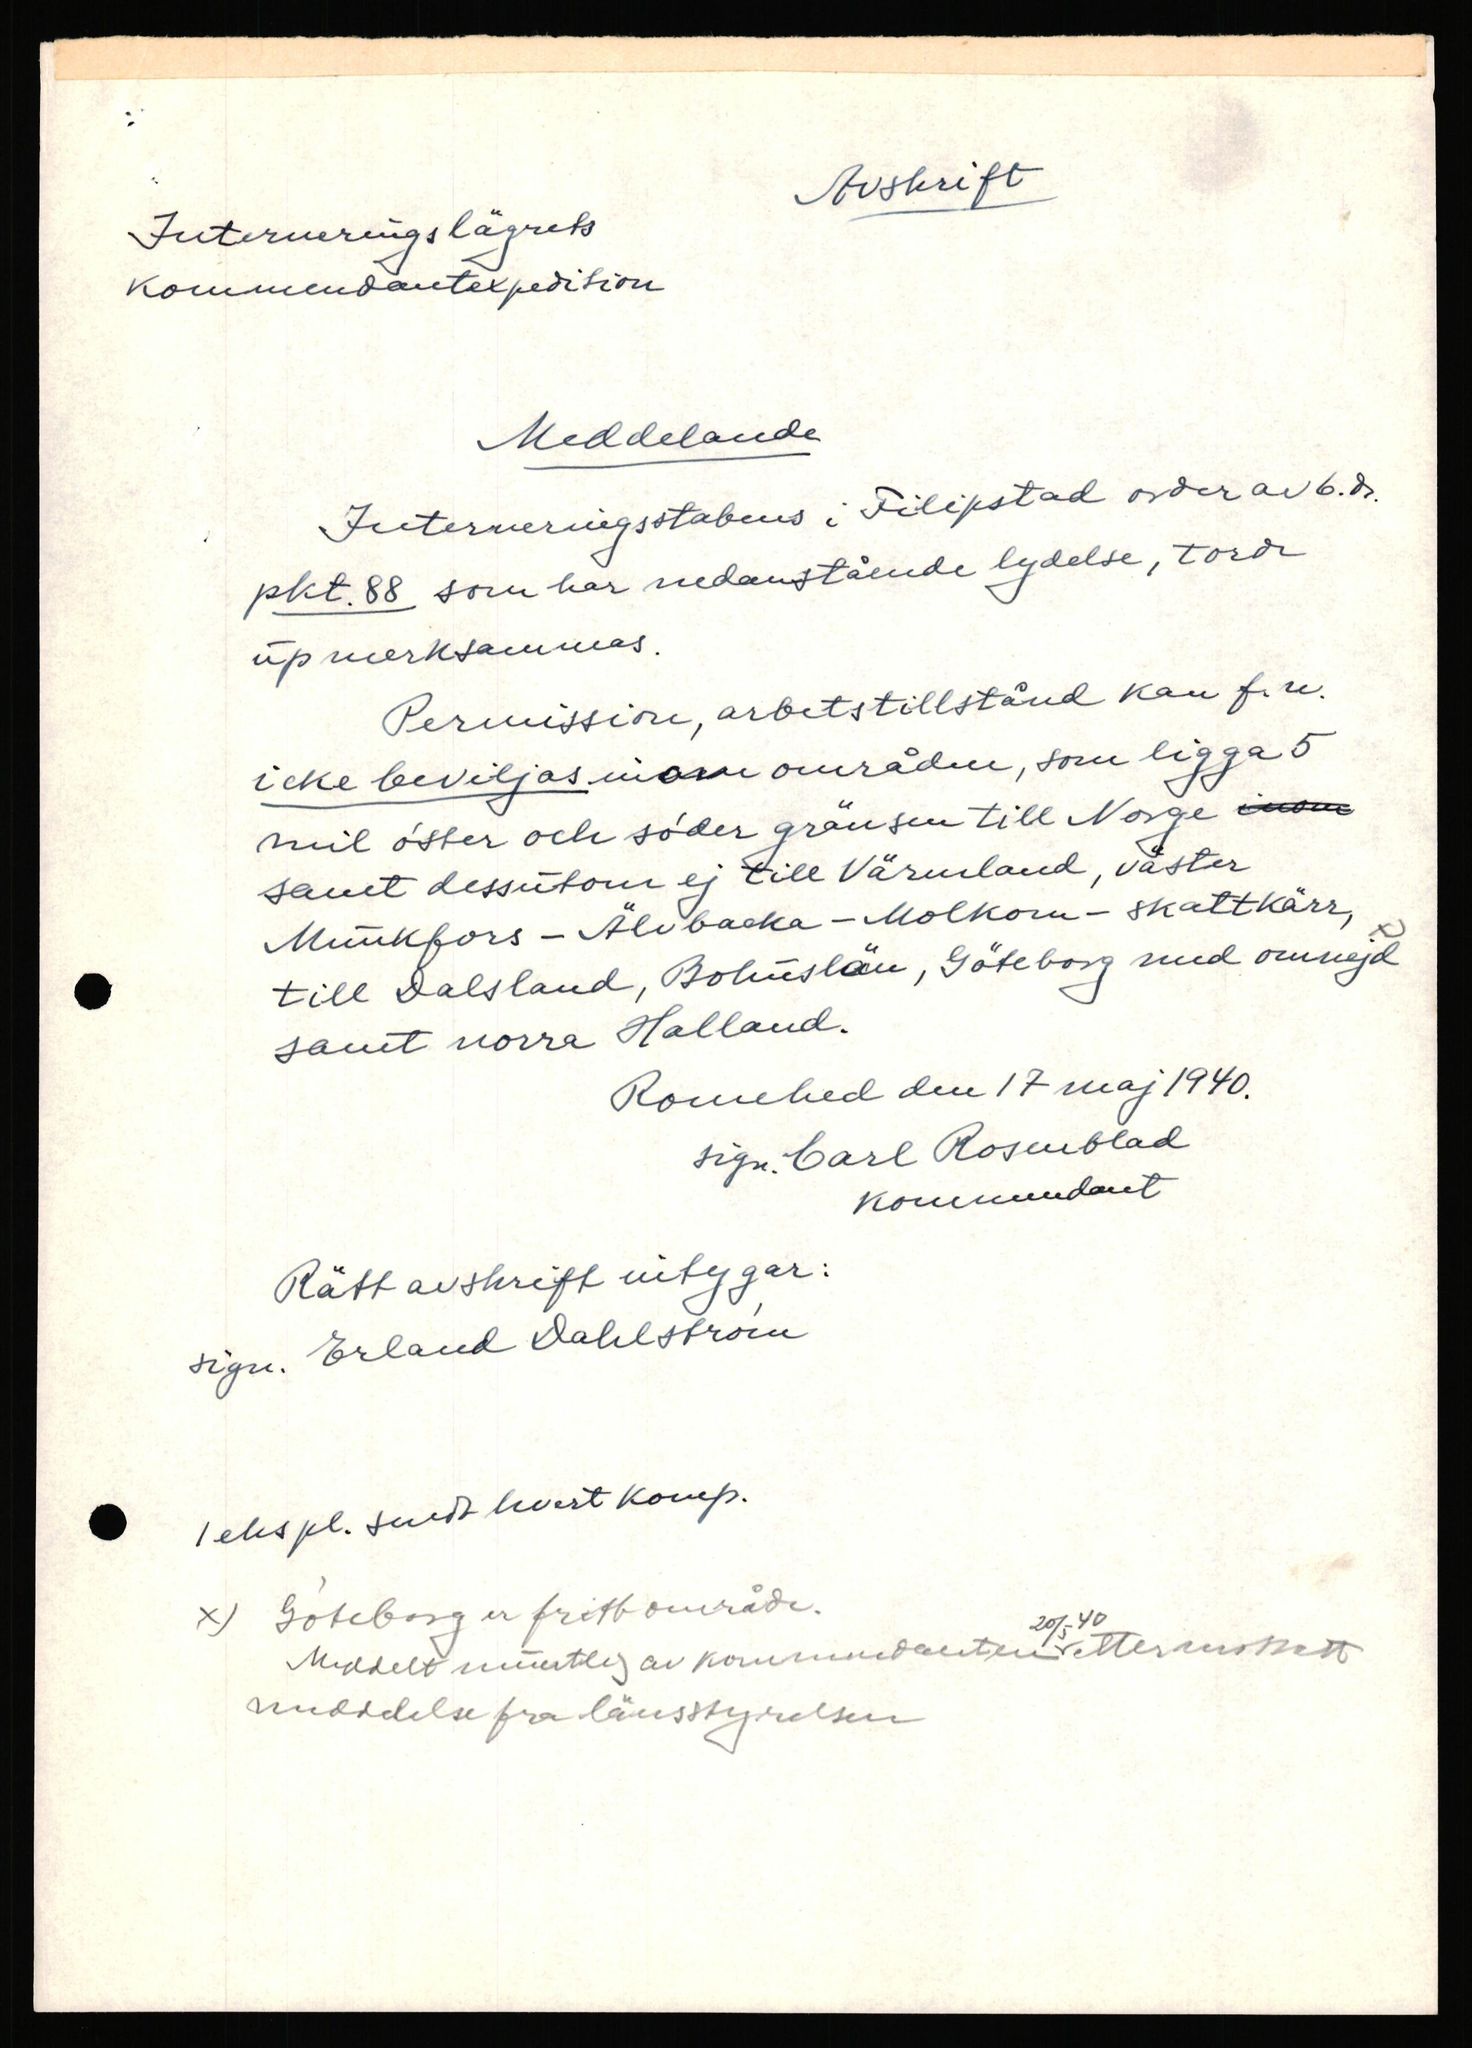 Avskrift
Interneringslägrets
kommendantexpedition
Meddelande
Interneringsstabens i Filipstad order av 6. ds.
pkt. 88 som har nedanstående lydelse, torde
upmerksammas.
Permission, arbetstillstånd kan f.n.
icke beviljas inom områden, som ligga 5
mil öster och söder gränsen till Norge inom
samt dessutom ej till Värmland, väster
Munkfors - Älvbacka - Molkom - Skattkärr,
till Dalsland, Bohuslän, Göteborg med omnejd x)
samt norra Halland.
Romehed den 17 maj 1940.
sign. Carl Rosenblad
kommendant
Rätt avskrift intygar:
sign. Erland Dahlström
1 ekspl. sendt hvert komp.
x) Göteborg er fritt område.
Meddelt muntlig av kommendanten 20/5-40 etter mottatt
meddelse fra länsstyrelsen